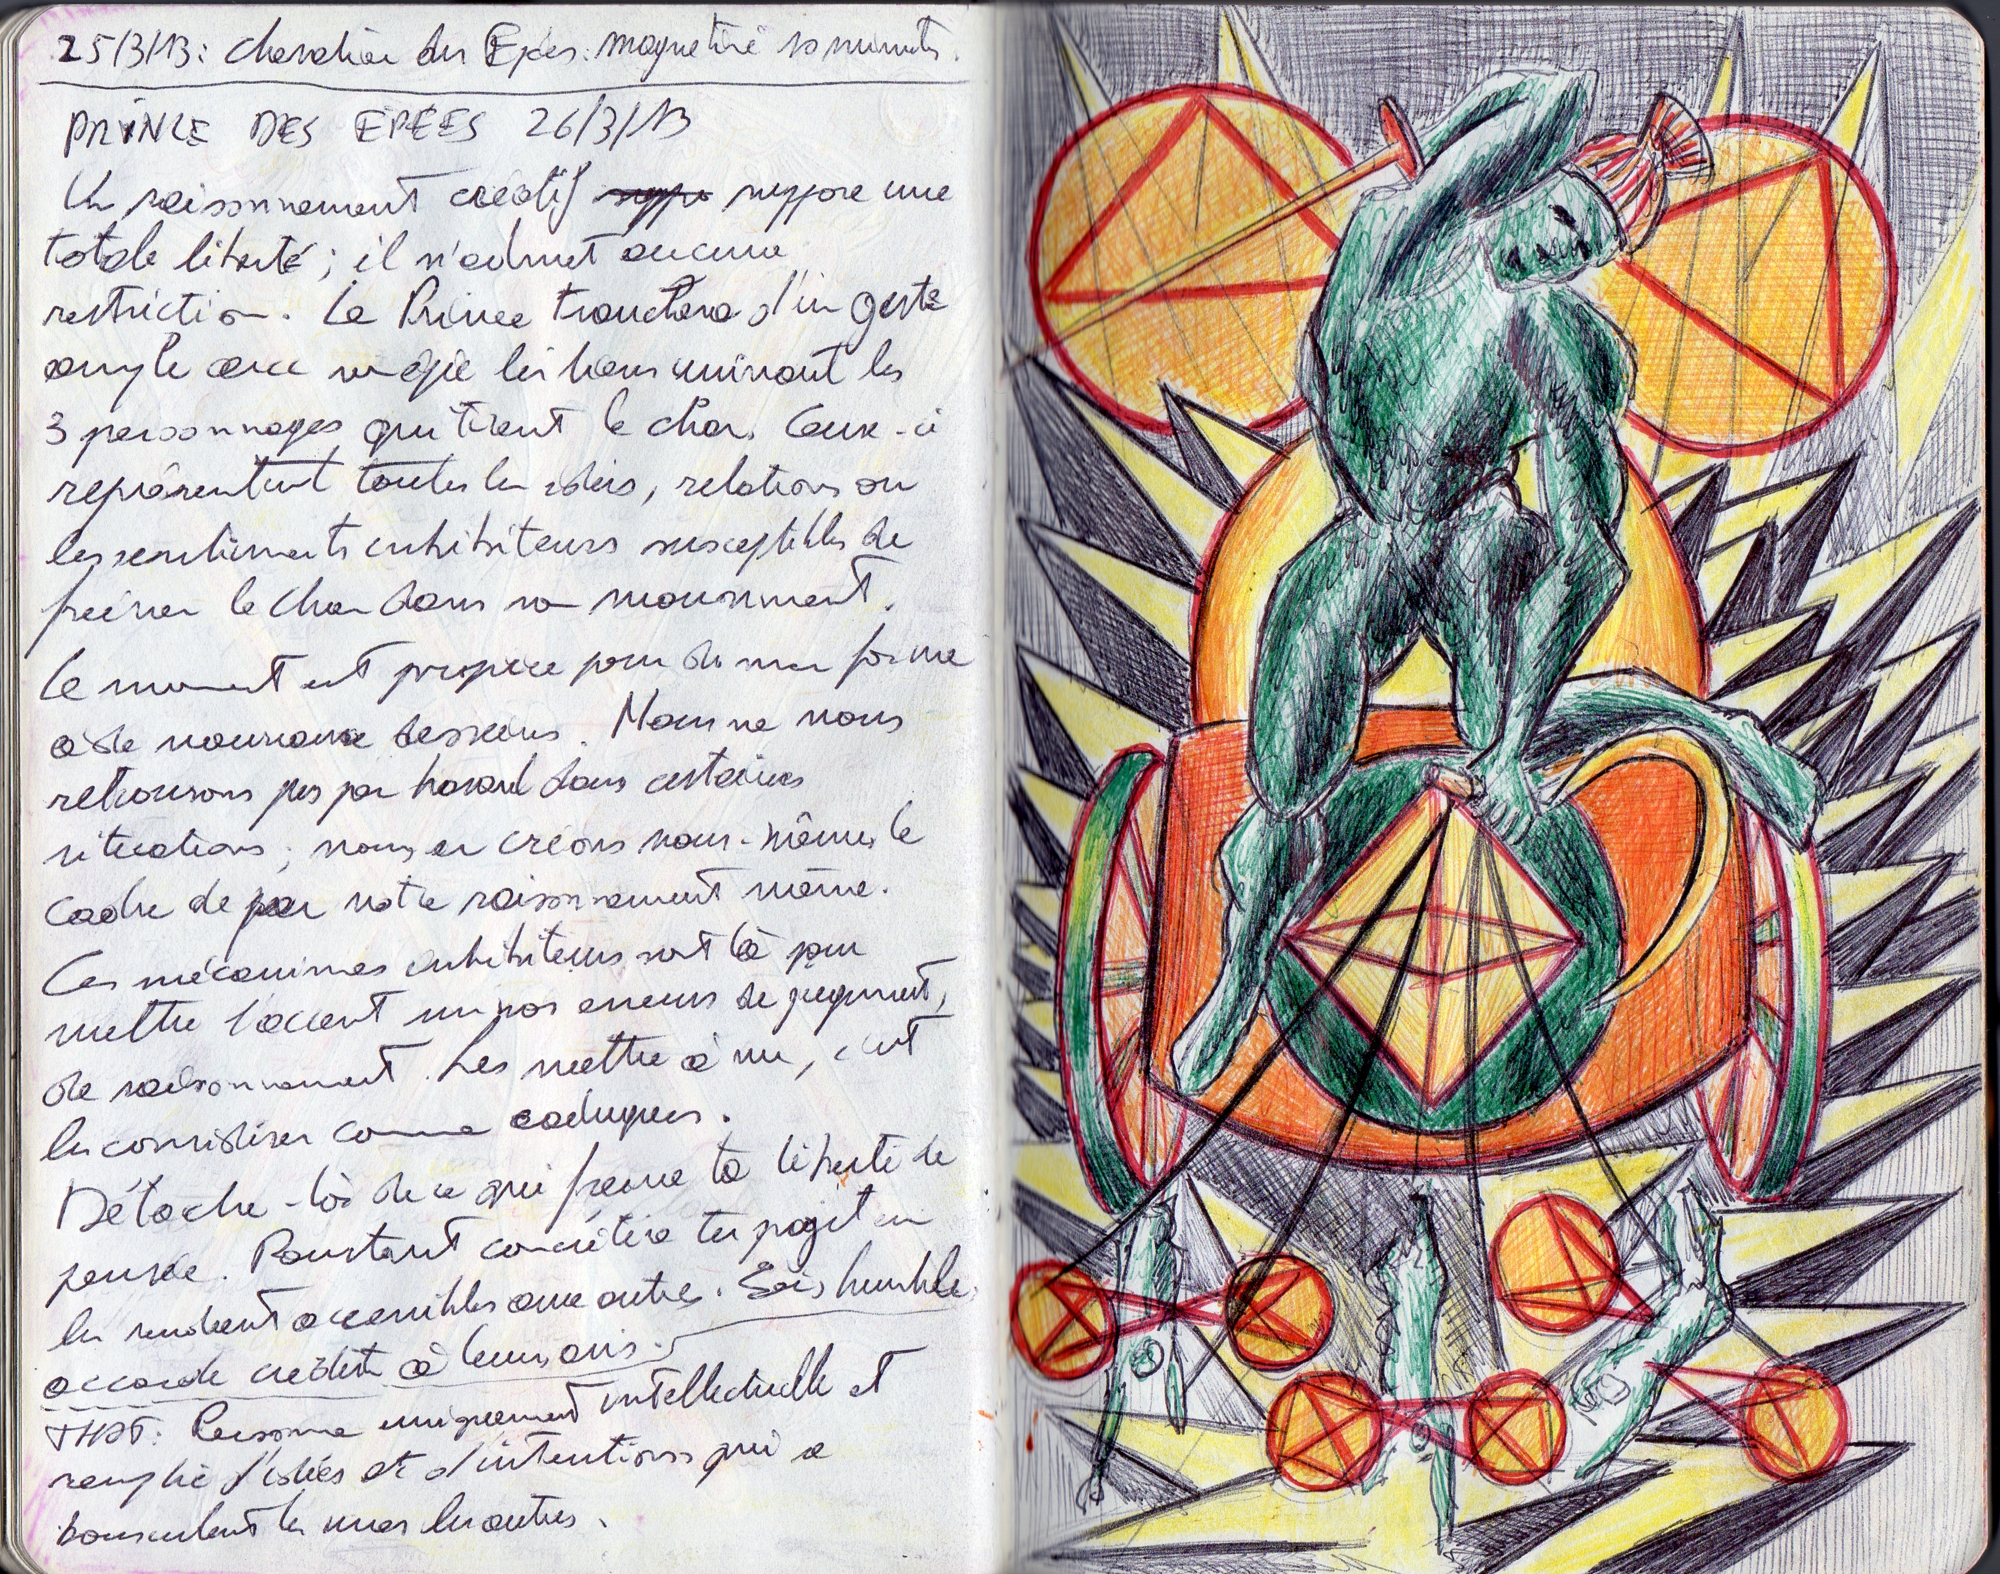 25/3/13: Chevalier des Epées: magnétisé 10 minutes.
PRINCE DES EPÉES 26/3/13
Un raisonnement créatif suppose une
totale liberté ; il n'admet aucune
restriction. Le Prince tranchera d'un geste
ample avec son épée les liens unissant les
3 personnages qui tirent le char. Ceux-ci
représentent toutes les idées, relations ou
les sentiments inhibiteurs susceptibles de
freiner le char dans son mouvement.
Le moment est propice pour donner forme
à de nouveaux desseins. Nous ne nous
retrouvons pas par hasard dans certaines
situations ; nous en créons nous-mêmes le
cadre de par notre raisonnement même.
Ces mécanismes inhibiteurs sont là pour
mettre l'accent sur nos erreurs de jugement,
de raisonnement. Les mettre à nu, c'est
les considérer comme caduques.
Détache-toi de ce qui freine ta liberté de
pensée. Pourtant concrétise tes projets en
les rendant accessibles aux autres. Sois humble,
accorde crédit à leurs avis.
THOT: Personne uniquement intellectuelle et
remplie d'idées et d'intentions qui se
bousculent les unes les autres.